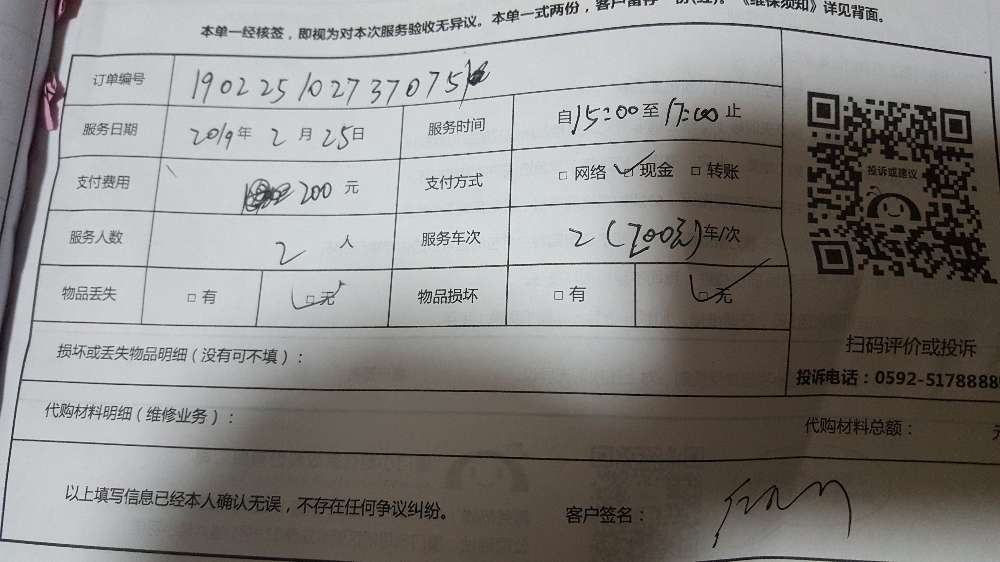 本单一经核签，即视为对本次服务验收无异议。本单一式两份，客户留存一份(红)。《维保须知》详见背面。
订单编号 190225102737075
服务日期 2019年 2 月 25日 服务时间 自15:00至17:00止
支付费用 200 元 支付方式 □ 网络 ✓现金 □ 转账
投诉或建议
服务人数 2 人 服务车次 2 (200元) 车/次
物品丢失 □ 有 □ 无 物品损坏 □ 有 □ 无
扫码评价或投诉
损坏或丢失物品明细（没有可不填）：
投诉电话：0592-5178888
代购材料明细（维修业务）：
代购材料总额：
以上填写信息已经本人确认无误，不存在任何争议纠纷。 客户签名：